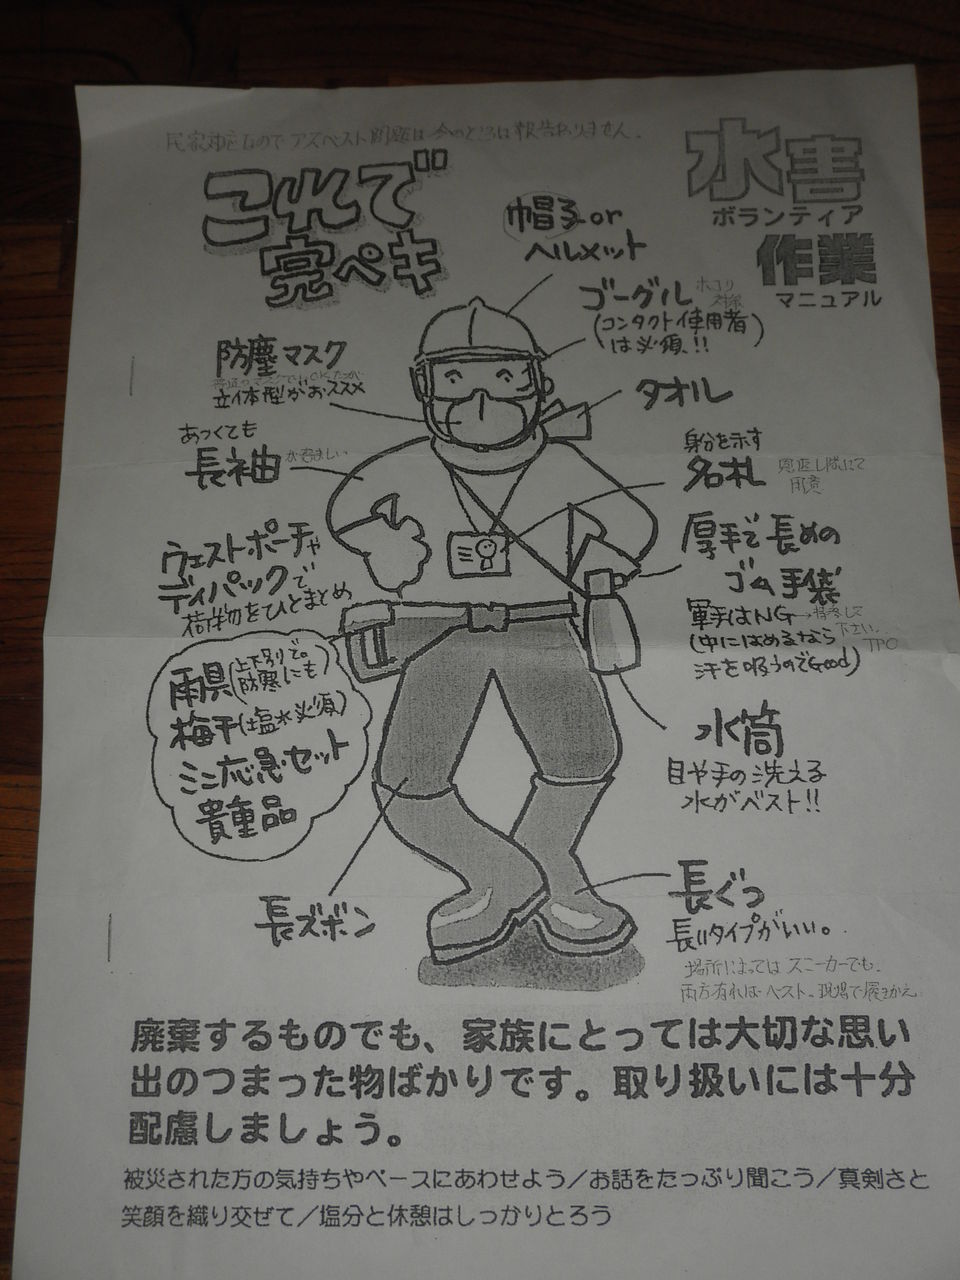 民家対応なのでアスベスト問題は今のところは報告ありません。
水害
ボランティア
作業
マニュアル
これで
完ペキ
帽子or
ヘルメット
ゴーグル
ホコリ
対策
(コンタクト使用者
は必須!!)
防塵マスク
立体型がおススメ
タオル
あつくても
長袖が望ましい
身分を示す
名札
恩返し隊にて
用意
ウェストポーチや
ディパックで
荷物をひとまとめ
厚手で長めの
ゴム手袋
軍手はNG→持参して
下さい。
TPO
(中にはめるなら
汗を吸うのでGood)
雨具(上下別で。
防寒にも)
梅干(塩水必須)
ミニ応急セット
貴重品
水筒
目や手の洗える
水がベスト!!
長ズボン
長ぐつ
長いタイプがいい。
場所によってはスニーカーでも。
両方有ればベスト。現場で履きかえ
廃棄するものでも、家族にとっては大切な思い
出のつまった物ばかりです。取り扱いには十分
配慮しましょう。
被災された方の気持ちやペースにあわせよう/お話をたっぷり聞こう/真剣さと
笑顔を織り交ぜて/塩分と休憩はしっかりとろう